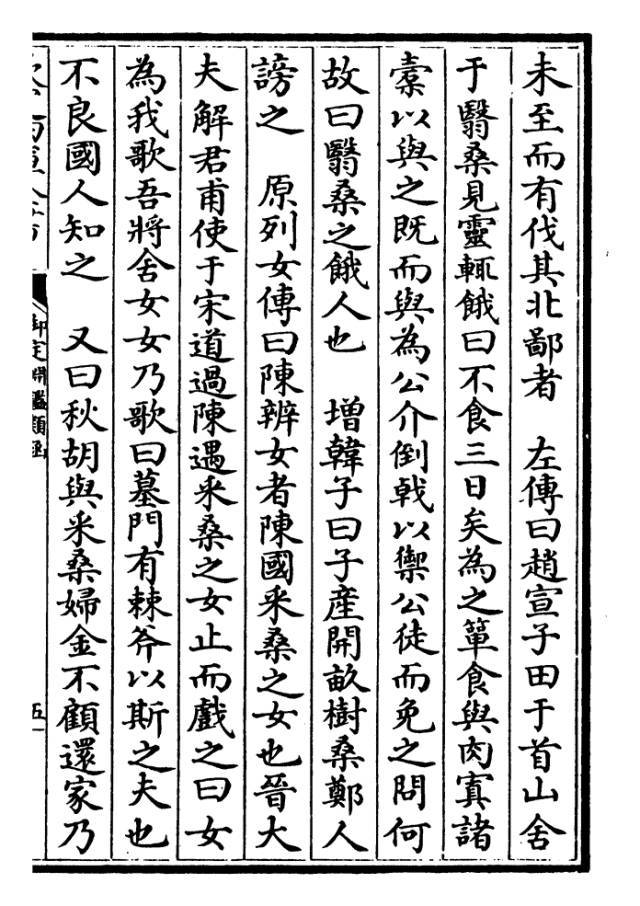 未至而有伐其北鄙者　左傳曰趙宣子田于首山舍
于翳桑見靈輒餓曰不食三日矣為之簞食與肉寘諸
橐以與之既而與為公介倒戟以禦公徒而免之問何
故曰翳桑之餓人也　增韓子曰子產開畝樹桑鄭人
謗之　原列女傳曰陳辨女者陳國采桑之女也晉大
夫解君甫使于宋道過陳遇采桑之女止而戲之曰女
為我歌吾將舍女女乃歌曰墓門有棘斧以斯之夫也
不良國人知之　又曰秋胡與采桑婦金不顧還家乃
御定淵鑑類函
五